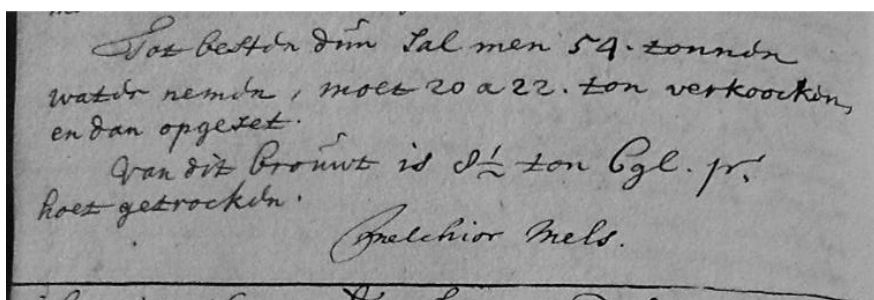 Tot besten dún sal men 54. tonnen
water nemen, moet 20 a 22. ton verkoocken,
en dan opgeset.
Van dit brouwt is 8½ ton bgl. pr.
hoet getrocken.
Melchior Mels.